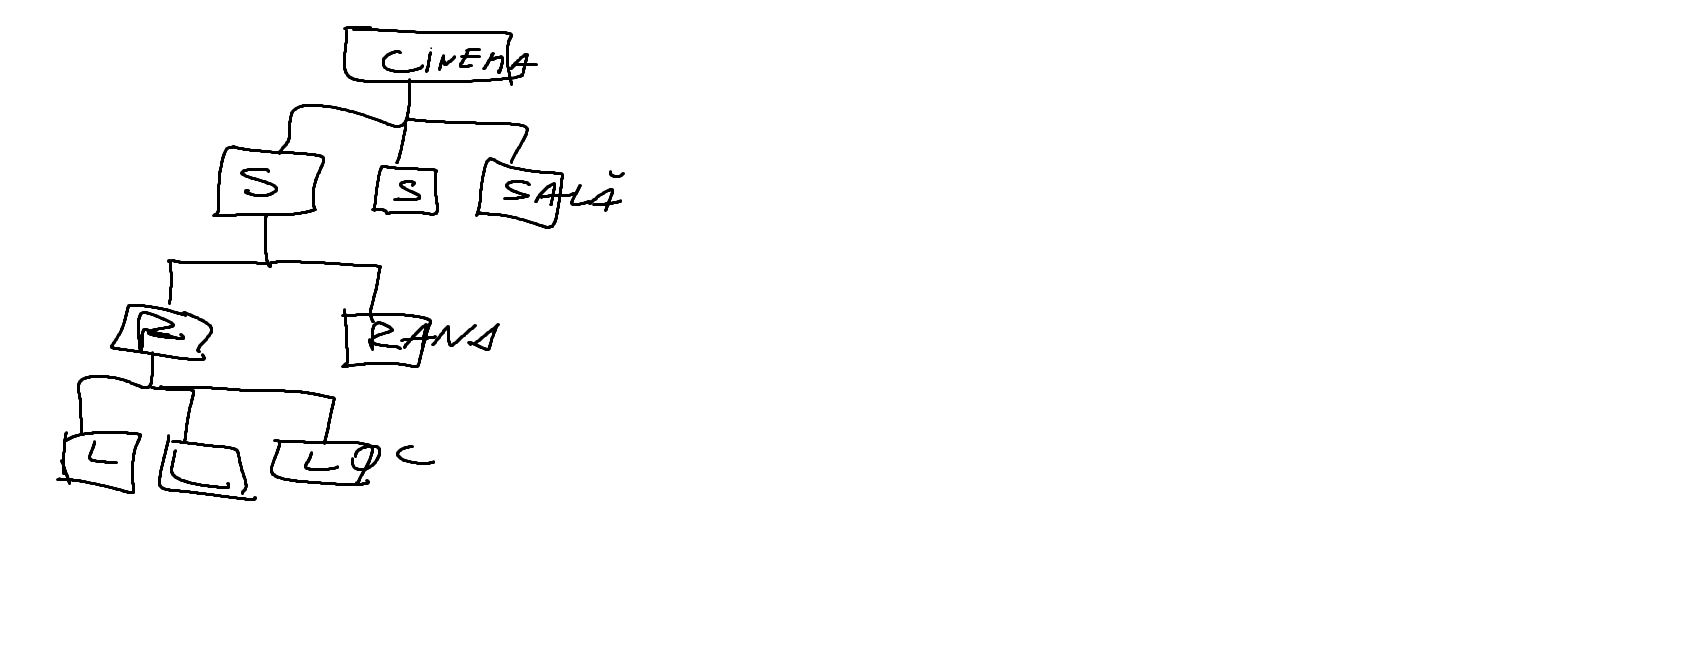 CINEMA
S S SALĂ
R RAND
L L LOC